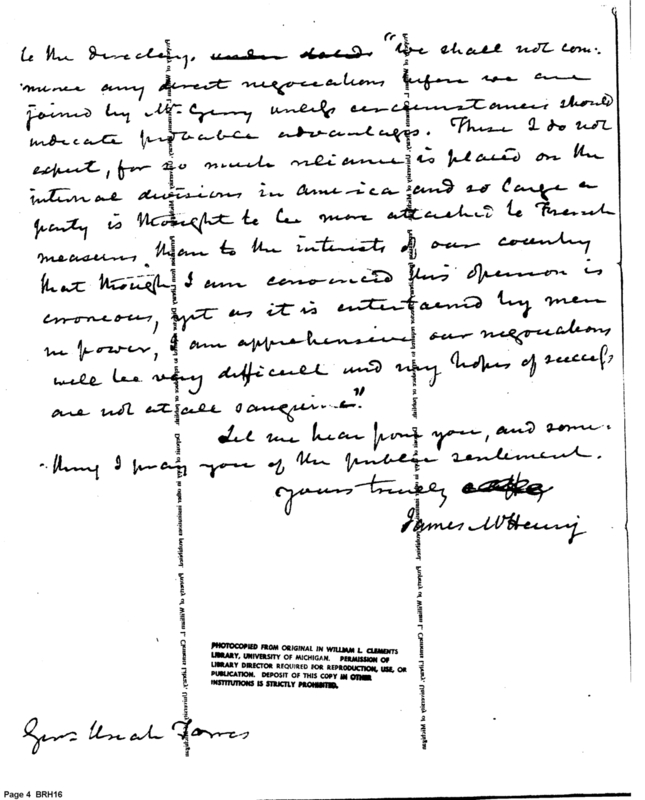 to the directory. under dated "We shall not com-
mence any direct negociations before we are
joined by Mr Gerry unless circumstances should
indicate probable advantages. These I do not
expect, for so much reliance is placed on the
internal divisions in America and so large a
party is thought to be more attached to French
measures than to the interests of our country
that though I am convinced this openion is
erroneous, yet as it is entertained by men
in power, I am apprehensive our negociations
will be very difficult and my hopes of success
are not at all sanguine."
Let me hear from you, and some-
thing I pray you of the public sentiment.
yours truely
James McHenry
PHOTOCOPIED FROM ORIGINAL IN WILLIAM L. CLEMENTS
LIBRARY, UNIVERSITY OF MICHIGAN. PERMISSION OF
LIBRARY DIRECTOR REQUIRED FOR REPRODUCTION, USE, OR
PUBLICATION. DEPOSIT OF THIS COPY IN OTHER
INSTITUTIONS IS STRICTLY PROHIBITED.
Genl Uriah Forres
Page 4 BRH16